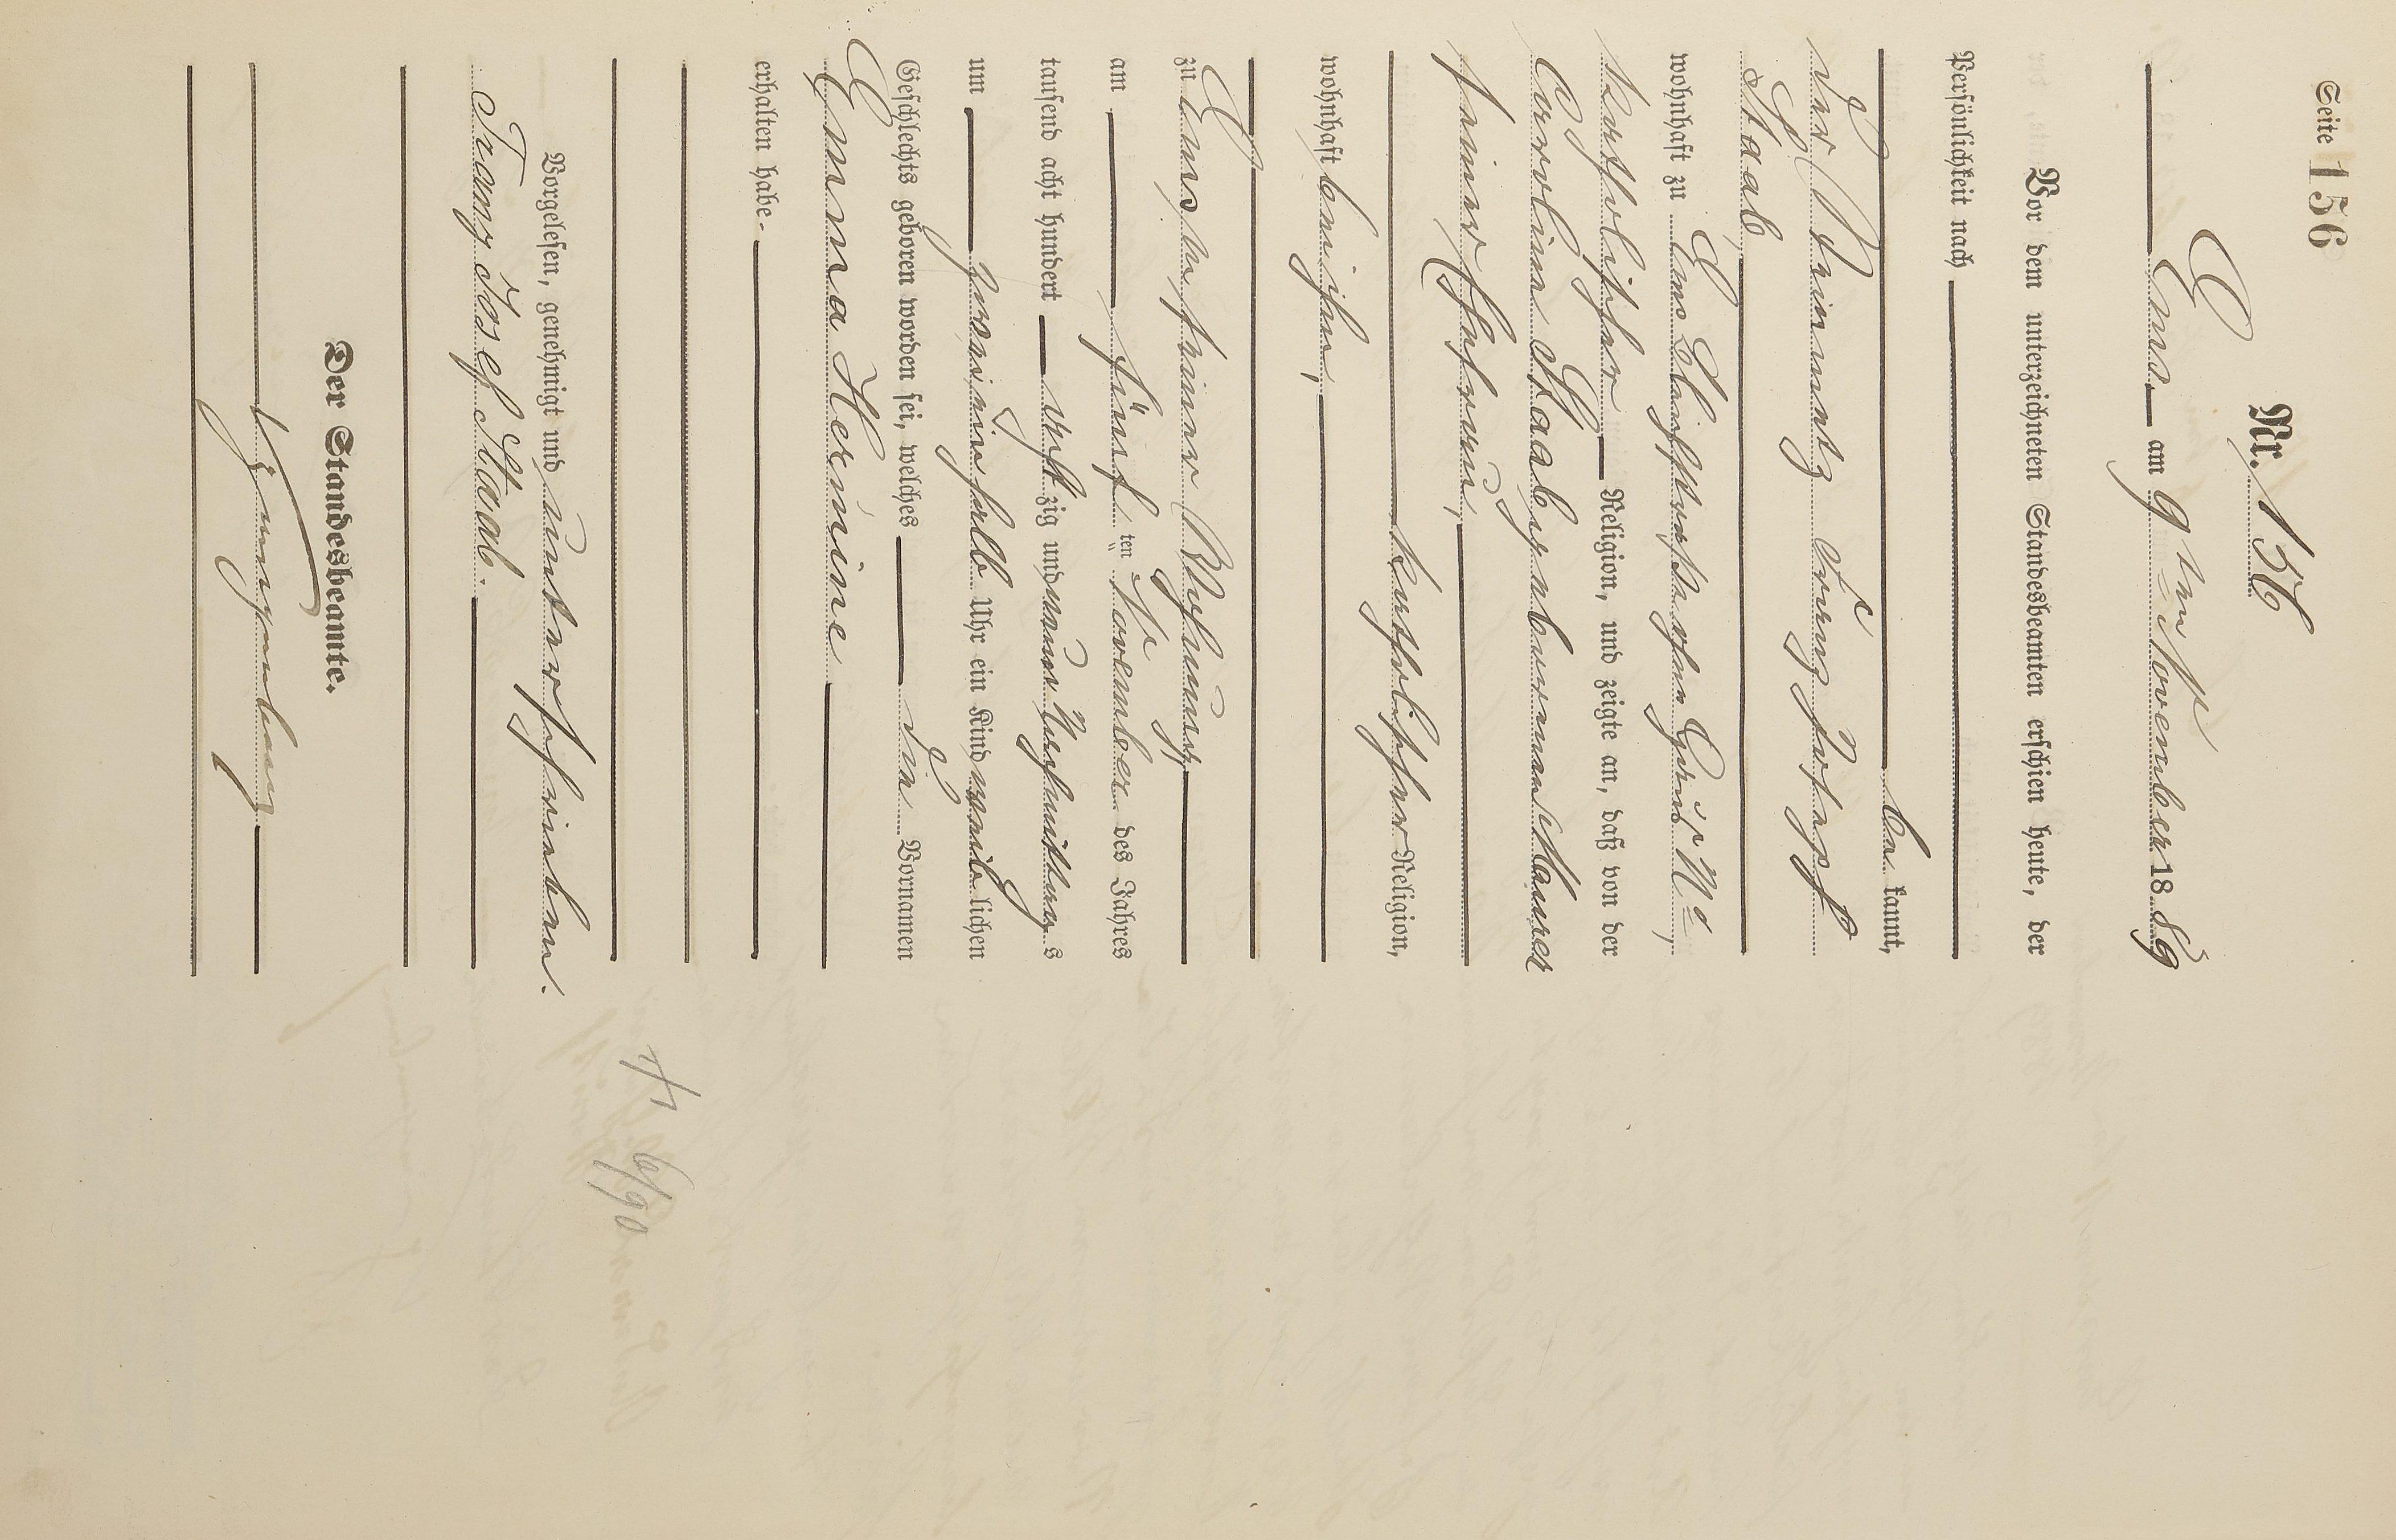 Seite 156
Nr. 156
Ems am 9ten November 1889
Vor dem unterzeichneten Standesbeamten erschien heute, der
Persönlichkeit nach
be kannt,
der Franz Josef
Staab
wohnhaft zu Ems
katholischer Religion, und zeigte an, daß von der
Carolina Staab geborenen Maurer
seiner Ehefrau,
katholischer Religion,
wohnhaft bei ihm,
zu Ems in seiner Wohnung
am fünf ten November des Jahres
tausend acht hundert acht zig und neun Nachmittags
um zwei ein halb Uhr ein Kind weib lichen
Geschlechts geboren worden sei, welches die Vornamen
Emma Hermine
erhalten habe.
Vorgelesen, genehmigt und unterschrieben.
Franz Josef Staab.
Der Standesbeamte.